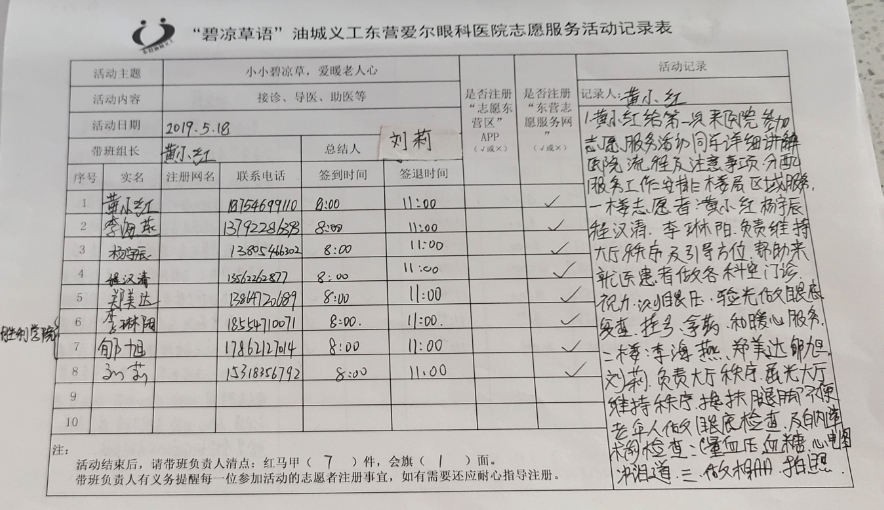 “碧凉草语”油城义工东营爱尔眼科医院志愿服务活动记录表
活动主题 小小碧凉草，爱暖老人心 是否注册“志愿东营区”APP（√或×） 是否注册“东营志愿服务网”（√或×） 活动记录
活动内容 接诊、导医、助医等
活动日期 2019.5.18
带班组长 黄小红 总结人 刘莉
序号 实名 注册网名 联系电话 签到时间 签退时间
1 黄小红 18754699110 8:00 11:00 ✓
2 李海燕 13792286393 8:00 11:00 ✓
3 杨宇辰 13805466302 8:00 11:00 ✓
4 程汉清 15562262877 8:00 11:00 ✓
5 郑美达 13864720689 8:00 11:00 ✓
胜利学院
6 李琳阳 18554710071 8:00. 11:00. ✓
7 郇旭 17862127014 8:00 11:00 ✓
8 刘莉 15318356792 8:00 11:00 ✓
9
10
记录人：黄小红
1.黄小红给第一次来医院参加
志愿服务活动同学详细讲解
医院流程及注意事项分配
服务工作安排楼层区域服务.
一楼志愿者：黄小红杨宇辰
程汉清.李琳阳.负责维持
大厅秩序及引导方位.帮助来
就医患者做各科室门诊
视力.测眼压.验光做眼底
复查.挂号.拿药.和暖心服务.
二楼：李海燕.郑美达郇旭.
刘莉.负责大厅秩序.
维持秩序.搀扶腿脚不便
老年人做眼底检查.及白内障
术前检查：量血压血糖.心电图
冲泪道.三.做相册.拍照.
注：
活动结束后，请带班负责人清点：红马甲（ 7 ）件，会旗（ 1 ）面。
带班负责人有义务提醒每一位参加活动的志愿者注册事宜，如有需要还应耐心指导注册。